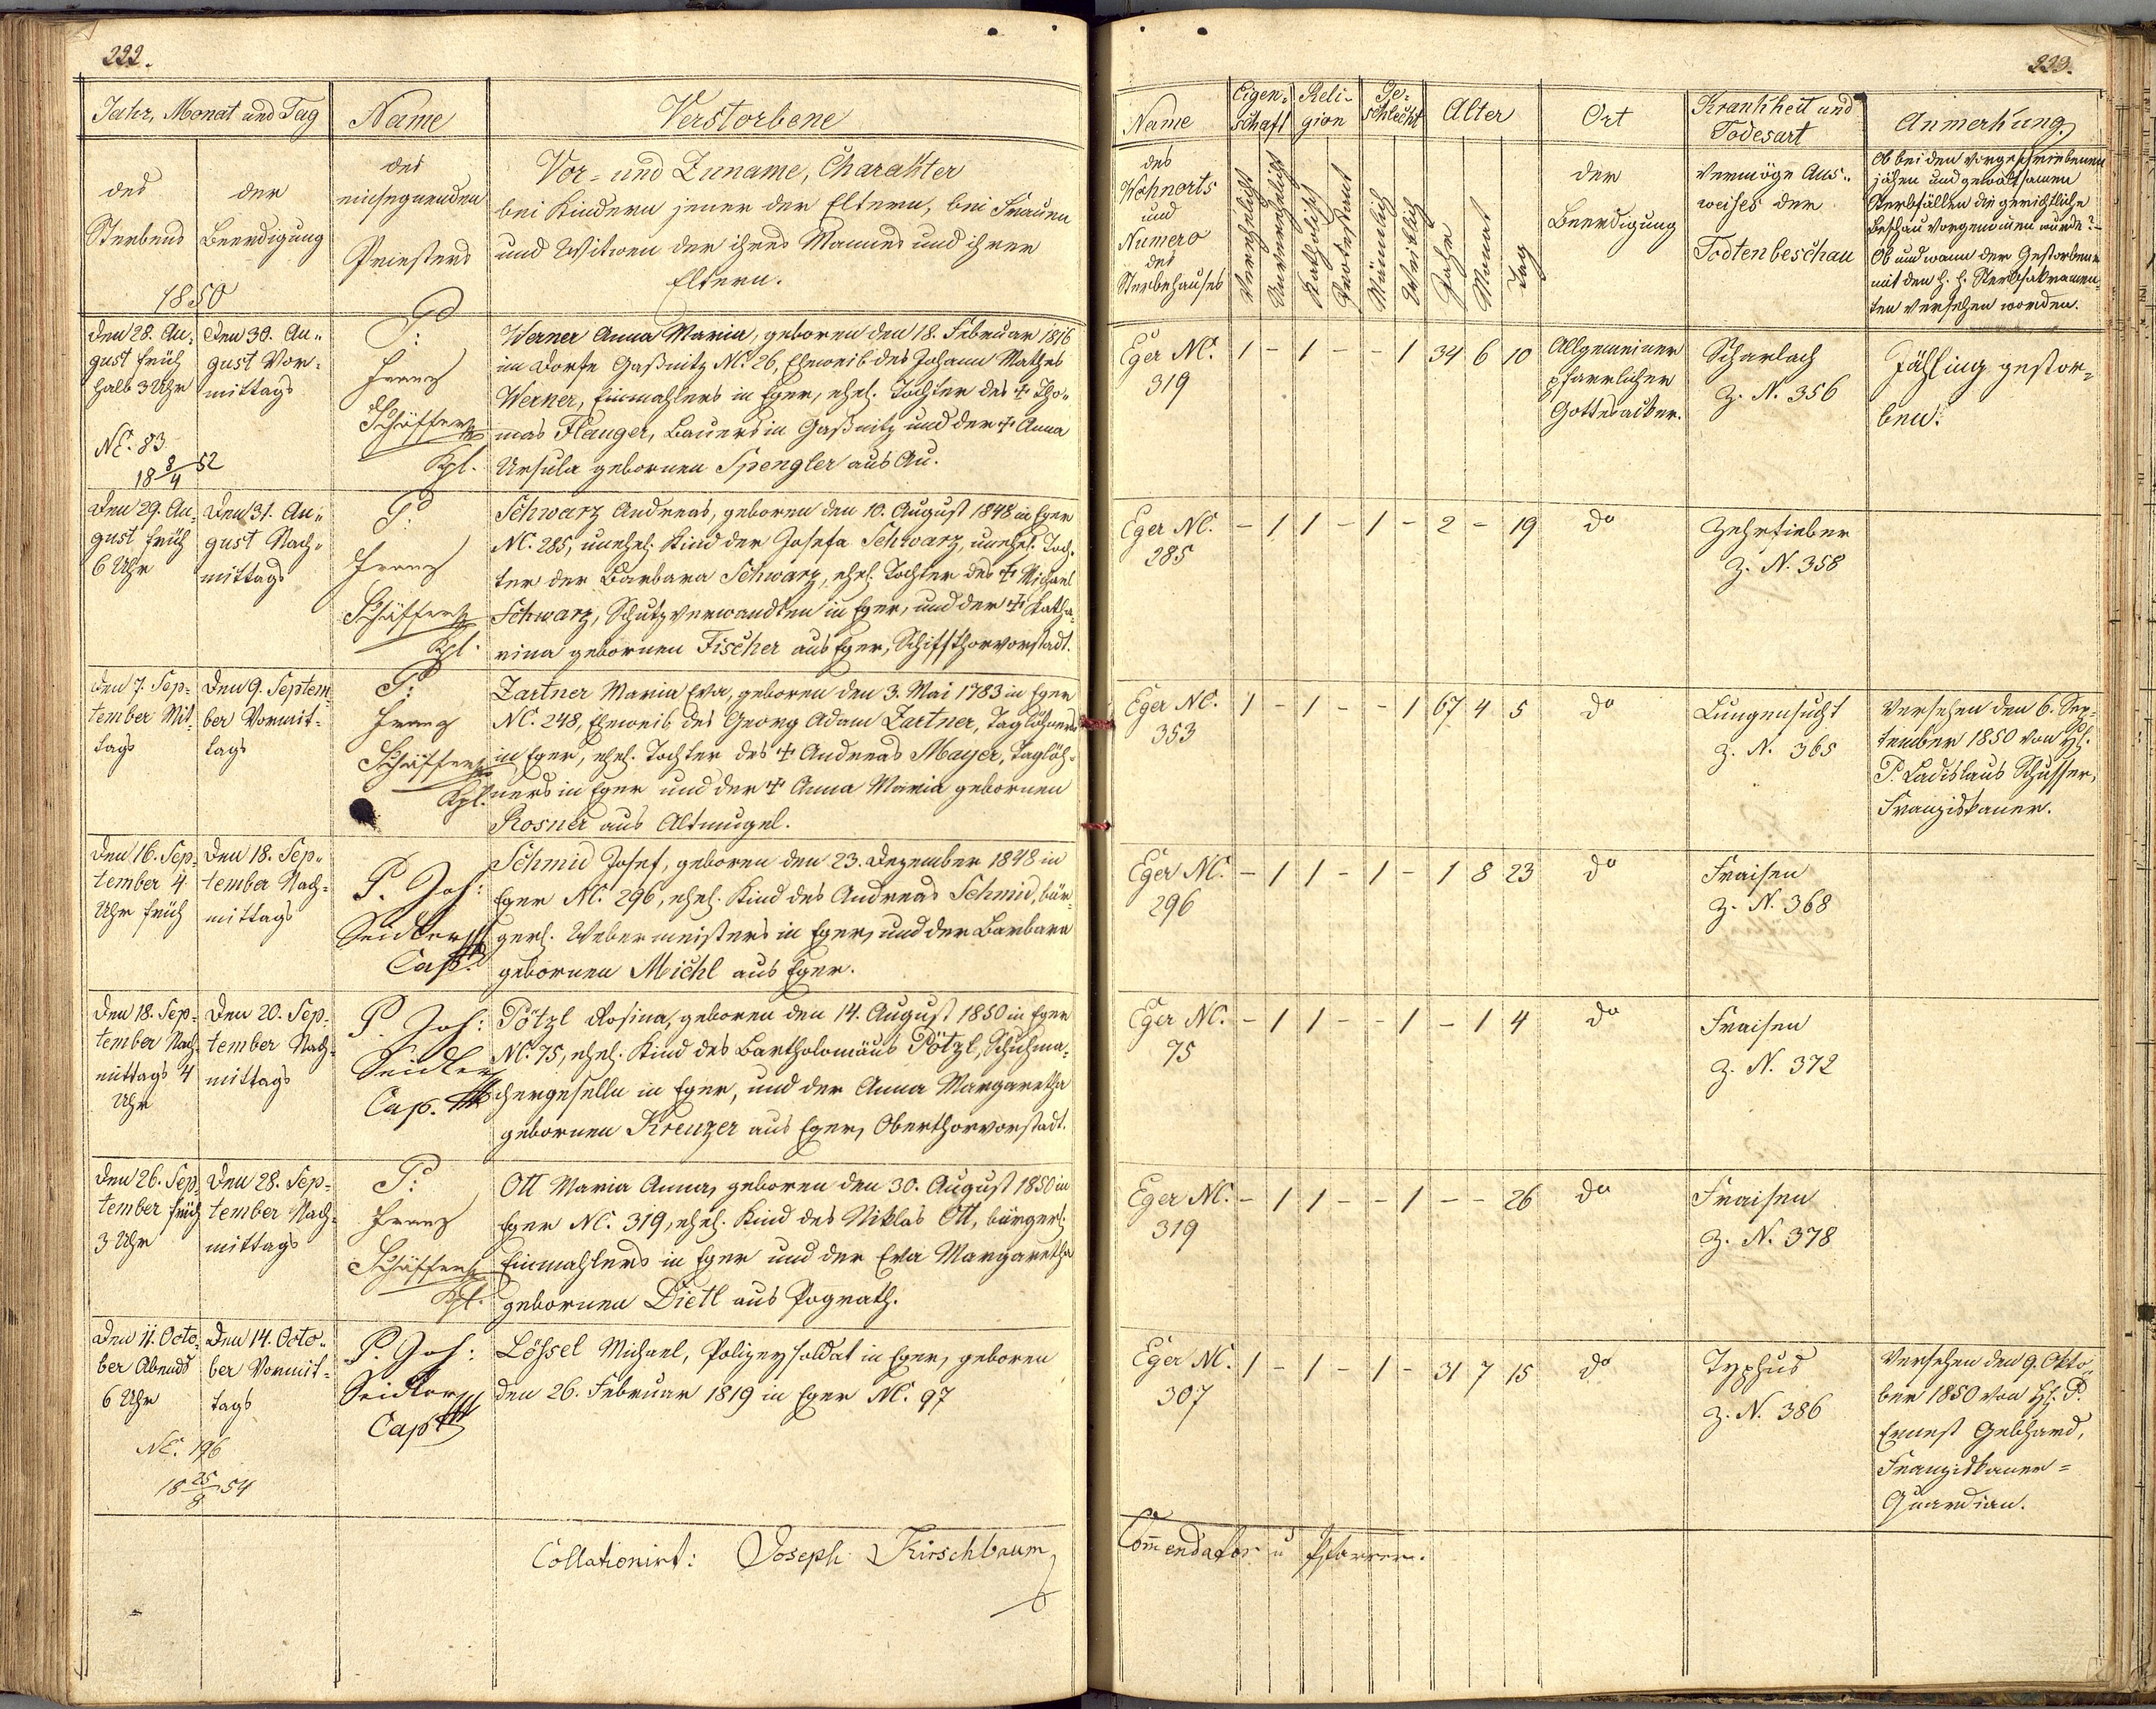 222.
Jahr, Monat und Tag
Name
Verstorbene
des
Sterbens
der
Beerdigung
des
einsegnenden
Priesters
Vor- und Zuname, Charakter
bei Kindern jener der Eltern, bei Frauen
und Witwen der ihres Mannes und ihrer
Eltern.
1850
Den 28. Au-
gust früh
halb 3 Uhr
NE. 83
18 8/4 52
Den 30. Au-
gust Vor-
mittags
P:
Franz
Schäffer
Kpl.
Werner Anna Maria, geboren den 18. Februar 1816
im Dorfe Gaßnitz NC. 26, Eheweib des Johann Mathes
Werner, Einmahlers in Eger, ehel. Tochter des † Tho-
mas Flauger, Bauers in Gaßnitz und der † Anna
Ursula gebornen Spengler aus Au.
Den 29. Au-
gust früh
6 Uhr
Den 31. Au-
gust Nach-
mittags
P.
Franz
Schäffer
Kpl.
Schwarz Andreas, geboren den 10. August 1848 in Eger
NC. 285, unehel. Kind der Josefa Schwarz, unehel. Toch-
ter der Barbara Schwarz, ehel. Tochter des † Michael
Schwarz, Schutzverwandten in Eger, und der † Katha-
rina gebornen Fischer aus Eger, Schiffthorvorstadt.
Den 7. Sep-
tember Mit-
tags
Den 9. Septem-
ber Vormit-
tags
P:
Franz
Schäffer
Kpl.
Zartner Maria Eva, geboren den 3. Mai 1783 in Eger
NC. 248, Eheweib des Georg Adam Zartner, Taglöhners
in Eger, ehel. Tochter des † Andreas Mayer, Taglöh-
ners in Eger und der † Anna Maria gebornen
Rosner aus Altmugel.
Den 16. Sep-
tember 4
Uhr früh
Den 18. Sep-
tember Nach-
mittags
P. Joh:
Seidler
Cap.
Schmid Josef, geboren den 23. Dezember 1848 in
Eger NC. 296, ehel. Kind des Andreas Schmid, bür-
gerl. Webermeisters in Eger, und der Barbara
gebornen Michl aus Eger.
Den 18. Sep-
tember Nach-
mittags 4
Uhr
Den 20. Sep-
tember Nach-
mittags
P. Joh:
Seidler
Cap.
Pötzl Rosina, geboren den 14. August 1850 in Eger
NC. 75, ehel. Kind des Bartholomäus Pötzl, Schuhma-
chergesellen in Eger, und der Anna Margaretha
gebornen Kreuzer aus Eger, Oberthorvorstadt.
Den 26. Sep-
tember früh
3 Uhr
Den 28. Sep-
tember Nach-
mittags
P:
Franz
Schäffer
Kpl.
Ott Maria Anna, geboren den 30. August 1850 in
Eger NC. 319, ehel. Kind des Niklas Ott, bürgerl.
Einmahlers in Eger und der Eva Margaretha
gebornen Dietl aus Pograth.
Den 11. Octo-
ber Abends
6 Uhr
NE. 196
18 25/8 54
Den 14. Octo-
ber Vormit-
tags
P. Joh:
Seidler
Cap.
Lössel Michael, Polizeysoldat in Eger, geboren
den 26. Februar 1819 in Eger NC. 97
Collationirt: Joseph Kirschbaum
223.
Name
Eigen-
schaft
Reli-
gion
Ge-
schlecht
Alter
Ort
Krankheit und
Todesart
Anmerkung
des
Wohnorts
und
Numero
des
Sterbehauses
Verehelicht
Unverehelicht
Katholisch
Protestant
Männlich
Weiblich
Jahr
Monat
Tag
der
Beerdigung
vermöge Aus-
weises der
Todtenbeschau
Ob bei den vorgeschriebenen
jähen und gewaltsamen
Sterbfällen die gerichtliche
Beschau vorgenommen wurde?
Ob und wann der Gestorbene
mit den h. h. Sterbsakramen-
ten versehen worden.
Eger NC.
319
1 - 1 - - 1 34 6 10
Allgemeiner
pfarrlicher
Gottesacker.
Scharlach
Z. N. 356
Jähling gestor-
ben.
Eger NC.
285
- 1 1 - 1 - 2 - 19
do
Zehrfieber
Z. N. 358
Eger NC.
353
1 - 1 - - 1 67 4 5
do
Lungensucht
Z. N. 365
Versehen den 6. Sep-
tember 1850 von H.
P. Ladislaus Schusser,
Franziskaner.
Eger NC.
296
- 1 1 - 1 - 1 8 23
do
Fraisen
Z. N. 368
Eger NC.
75
- 1 1 - - 1 - 1 4
do
Fraisen
Z. N. 372
Eger NC.
319
- 1 1 - - 1 - - 26
do
Fraisen
Z. N. 378
Eger NC.
307
1 - 1 - 1 - 31 7 15
do
Typhus
Z. N. 386
Versehen den 9. Okto-
ber 1850 von H. P.
Ernest Gebhard,
Franziskaner-
Guardian.
Com̄endator u Pfarrer.